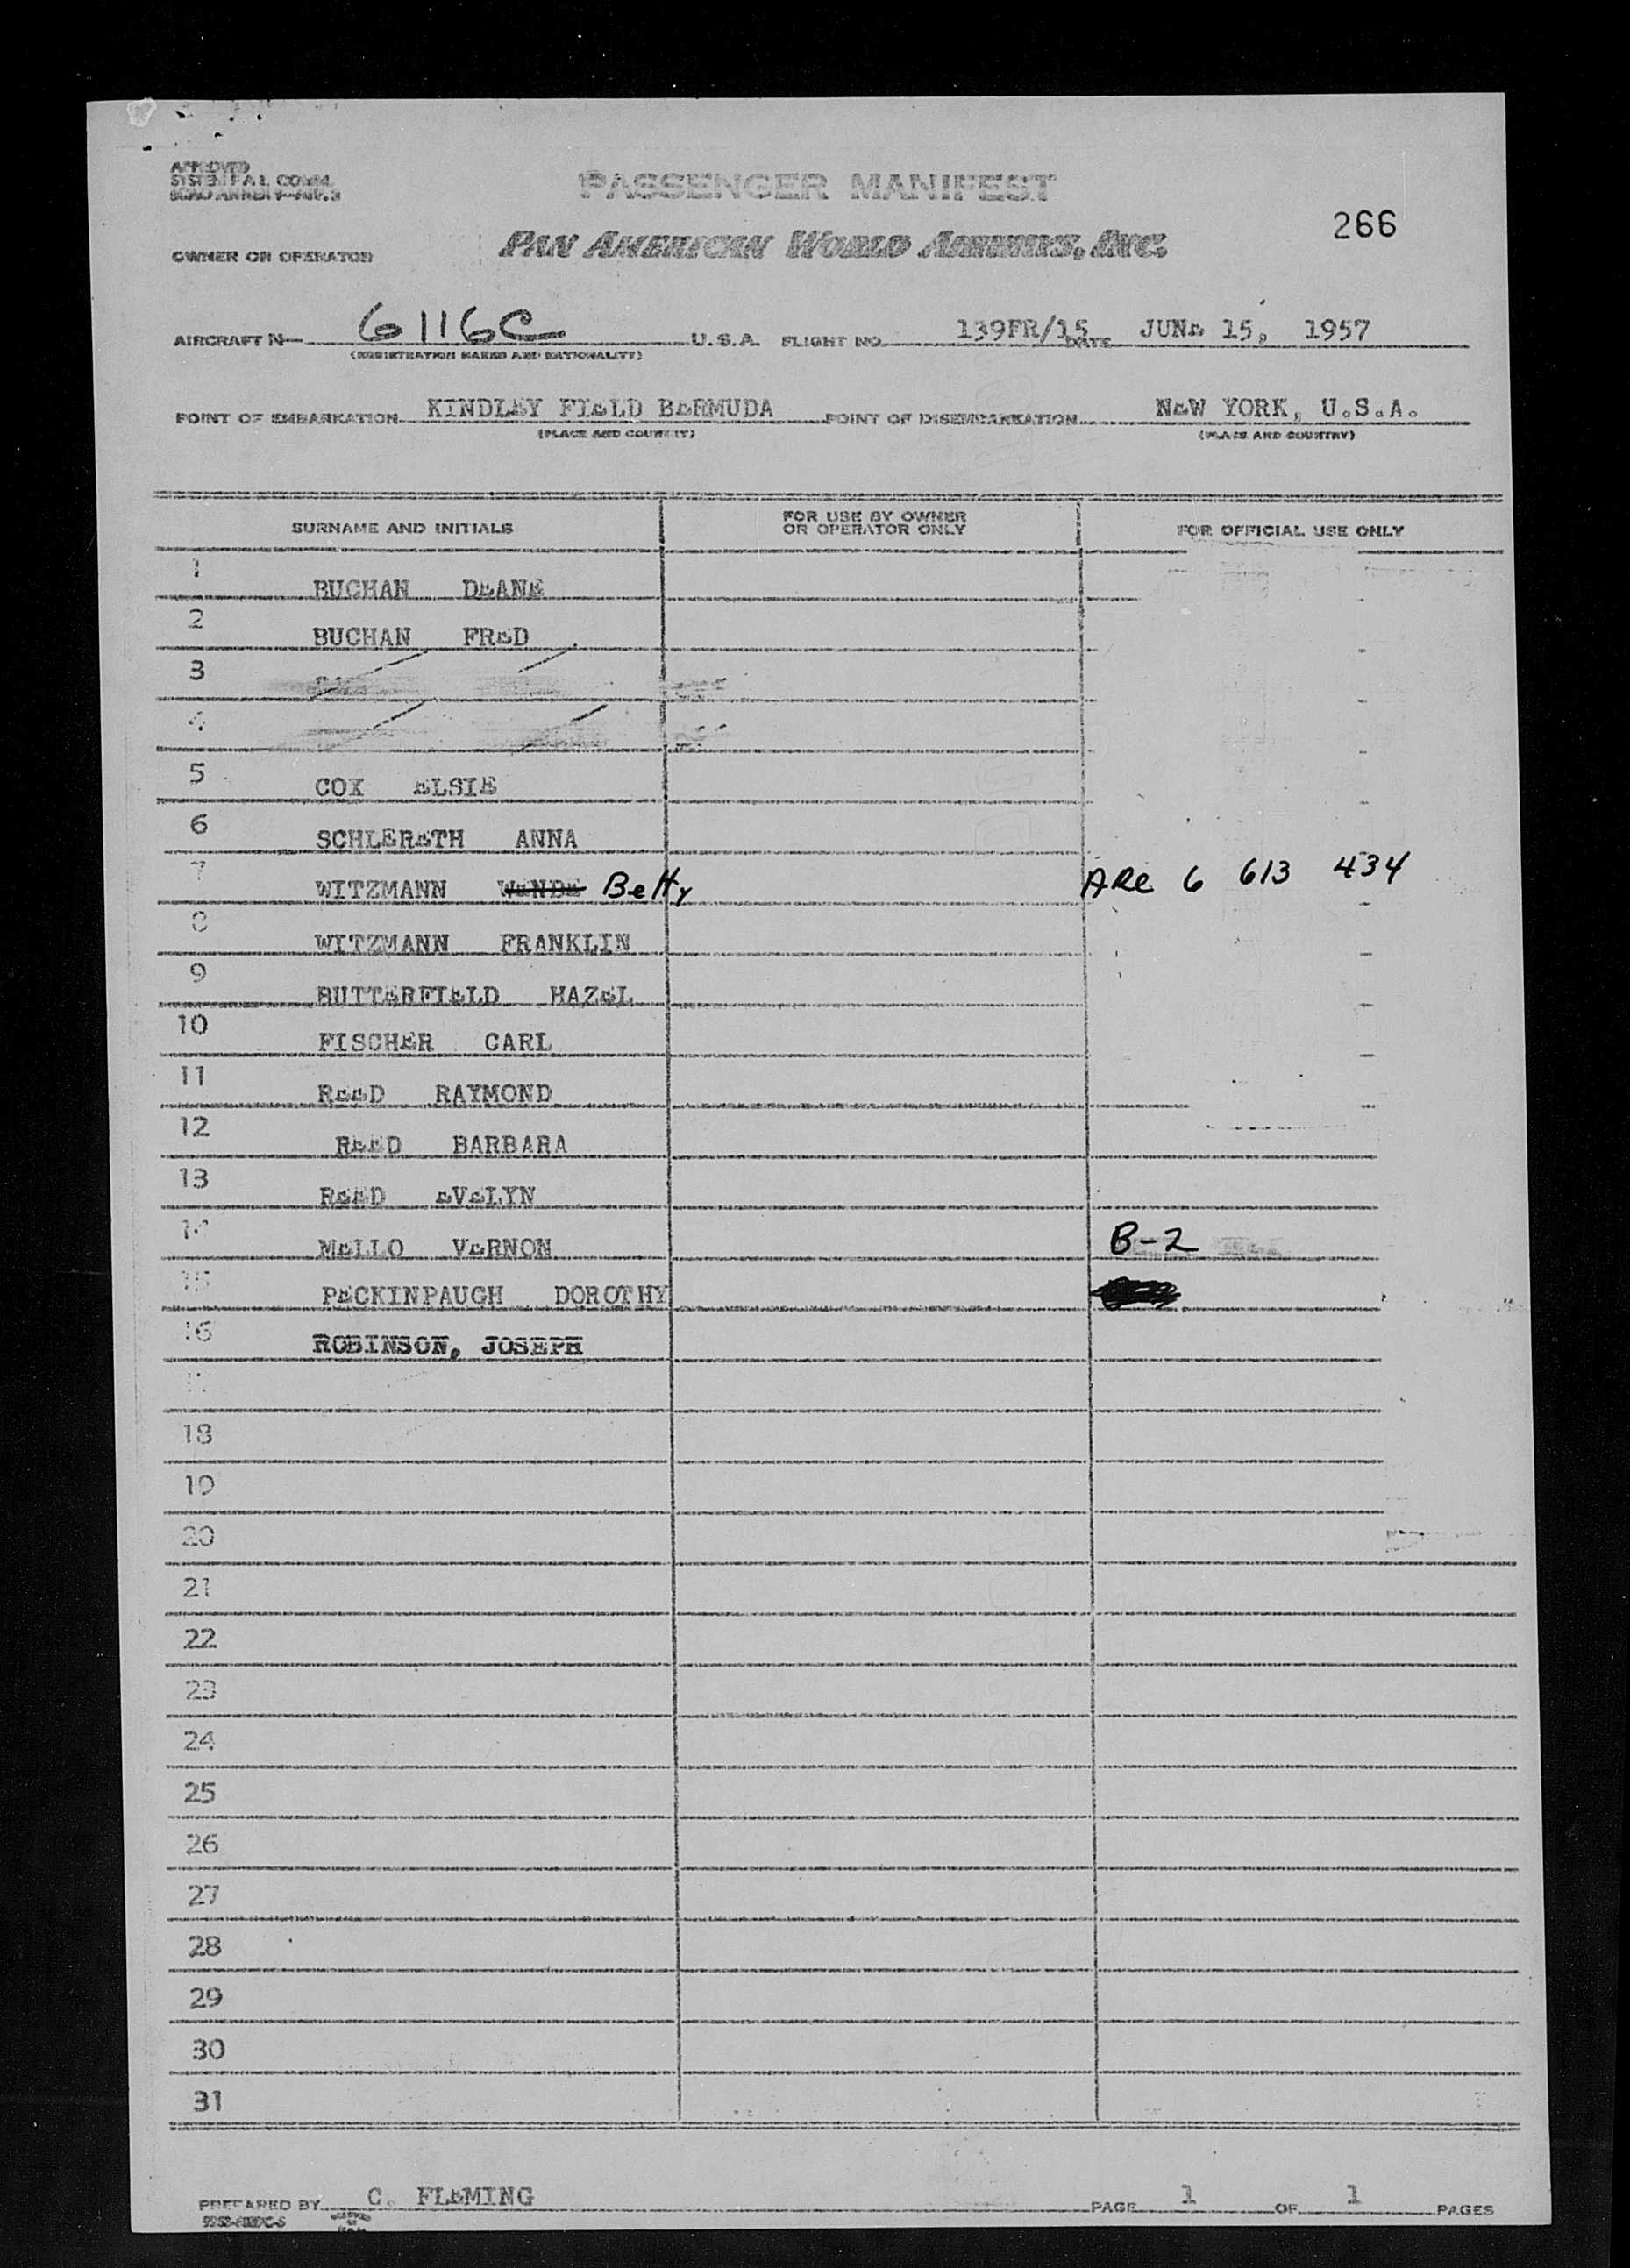 APPROVED
SYSTEM F.A.L. COMM.
PASSENGER MANIFEST
266
OWNER OR OPERATOR PAN AMERICAN WORLD AIRWAYS, INC.
AIRCRAFT N 6116C U.S.A. FLIGHT NO. 139FR/15 DATE JUNE 15, 1957
(REGISTRATION MARKS AND NATIONALITY)
POINT OF EMBARKATION KINDLEY FIELD BERMUDA POINT OF DISEMBARKATION NEW YORK, U.S.A.
(PLACE AND COUNTRY) (PLACE AND COUNTRY)
SURNAME AND INITIALS FOR USE BY OWNER OR OPERATOR ONLY FOR OFFICIAL USE ONLY
1 BUCHAN DEANE
2 BUCHAN FRED
3
4
5 COX ELSIE
6 SCHLERETH ANNA
7 WITZMANN WENDE Betty ARC 6 613 434
8 WITZMANN FRANKLIN
9 BUTTERFIELD HAZEL
10 FISCHER CARL
11 REED RAYMOND
12 REED BARBARA
13 REED EVELYN
14 MELLO VERNON B-2
15 PECKINPAUGH DOROTHY
16 ROBINSON, JOSEPH
18
19
20
21
22
23
24
25
26
27
28
29
30
31
PREPARED BY C. FLEMING PAGE 1 OF 1 PAGES